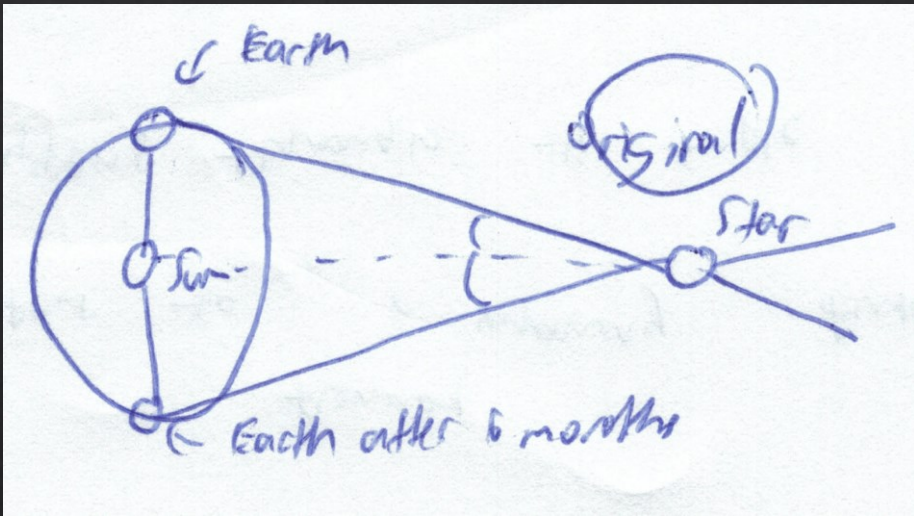 Earth
Original
Star
Sun
Earth after 6 months